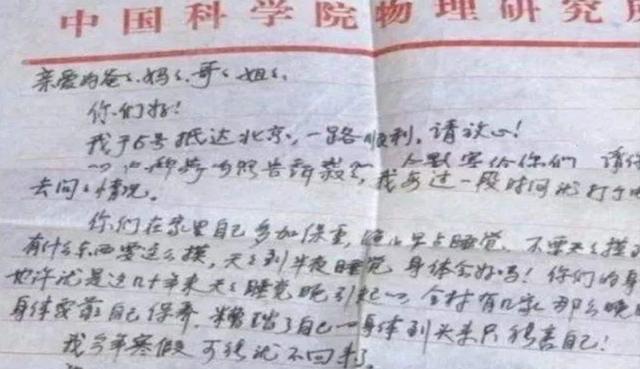 中国科学院物理研究所
亲爱的爸々、妈々、哥々、姐々、
你们好!
我于5号抵达北京,一路顺利,请放心!
寄给你们 请
我每过一段时间 打
去问々情况。
你们在家里自己多加保重,晚上早点睡觉,不要天々摸
有什么东西要这么摸,天々到半夜睡觉 身体会好吗!你们的身
也许就是这几十年来天々睡觉晚引起 全村有几家 那么晚
身体要靠自己保养,糟蹋了自己 身体到头来只 害自己!
我今年寒假 可能就不回来了